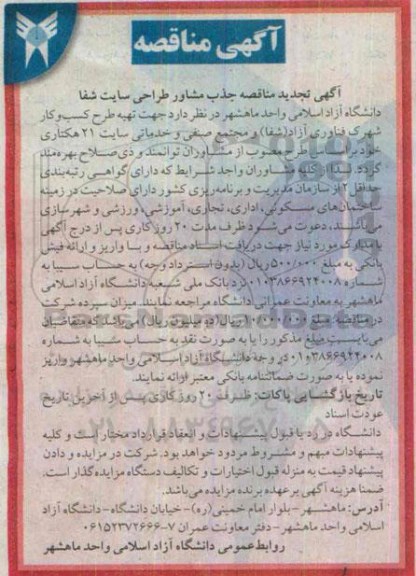 آگهی مناقصه
آگهی تجدید مناقصه جذب مشاور طراحی سایت شفا
دانشگاه آزاد اسلامی واحد ماهشهر در نظر دارد جهت تهیه طرح کسب‌وکار
شهرک فناوری آزاد(شفا) و مجتمع صنفی و خدماتی سایت ۲۱ هکتاری
خود براساس طرح مصوب از مشاوران توانمند و ذی‌صلاح بهره‌مند
گردد. لذا از کلیه مشاوران واجد شرایط که دارای گواهی رتبه‌بندی
حداقل ۲ از سازمان مدیریت و برنامه‌ریزی کشور دارای صلاحیت در زمینه
ساختمان‌های مسکونی، اداری، تجاری، آموزشی، ورزشی و شهرسازی
می‌باشند، دعوت می‌شود ظرف مدت ۲۰ روز کاری پس از درج آگهی
با مدارک مورد نیاز جهت دریافت اسناد مناقصه و با واریز و ارائه فیش
بانکی به مبلغ ۵۰۰/۰۰۰ ریال (بدون استرداد وجه) به حساب سیبا به
شماره ۰۱۰۳۸۶۶۹۲۴۰۰۸ نزد بانک ملی شعبه دانشگاه آزاد اسلامی
ماهشهر به معاونت عمرانی دانشگاه مراجعه نمایند. میزان سپرده شرکت
در مناقصه مبلغ ۱۰/۰۰۰/۰۰۰ ریال (ده میلیون ریال) می‌باشد که متقاضیان
می‌بایست مبلغ مذکور را یا به صورت نقد به حساب سیبا به شماره
در وجه دانشگاه آزاد اسلامی واحد ماهشهر واریز
نموده یا به صورت ضمانتنامه بانکی معتبر ارائه نمایند.
تاریخ بازگشایی پاکات: ظرف ۲۰ روز کاری پس از آخرین تاریخ
عودت اسناد
دانشگاه در رد یا قبول پیشنهادات و انعقاد قرارداد مختار است و کلیه
پیشنهادات مبهم و مشروط مردود خواهد بود. شرکت در مزایده و دادن
پیشنهاد قیمت به منزله قبول اختیارات و تکالیف دستگاه مزایده‌گذار است.
ضمنا هزینه آگهی برعهده برنده مزایده می‌باشد.
آدرس: ماهشهر - بلوار امام خمینی(ره)- خیابان دانشگاه - دانشگاه آزاد
اسلامی واحد ماهشهر - دفتر معاونت عمران ۷-۰۶۱۵۲۳۷۲۶۶۶
روابط عمومی دانشگاه آزاد اسلامی واحد ماهشهر